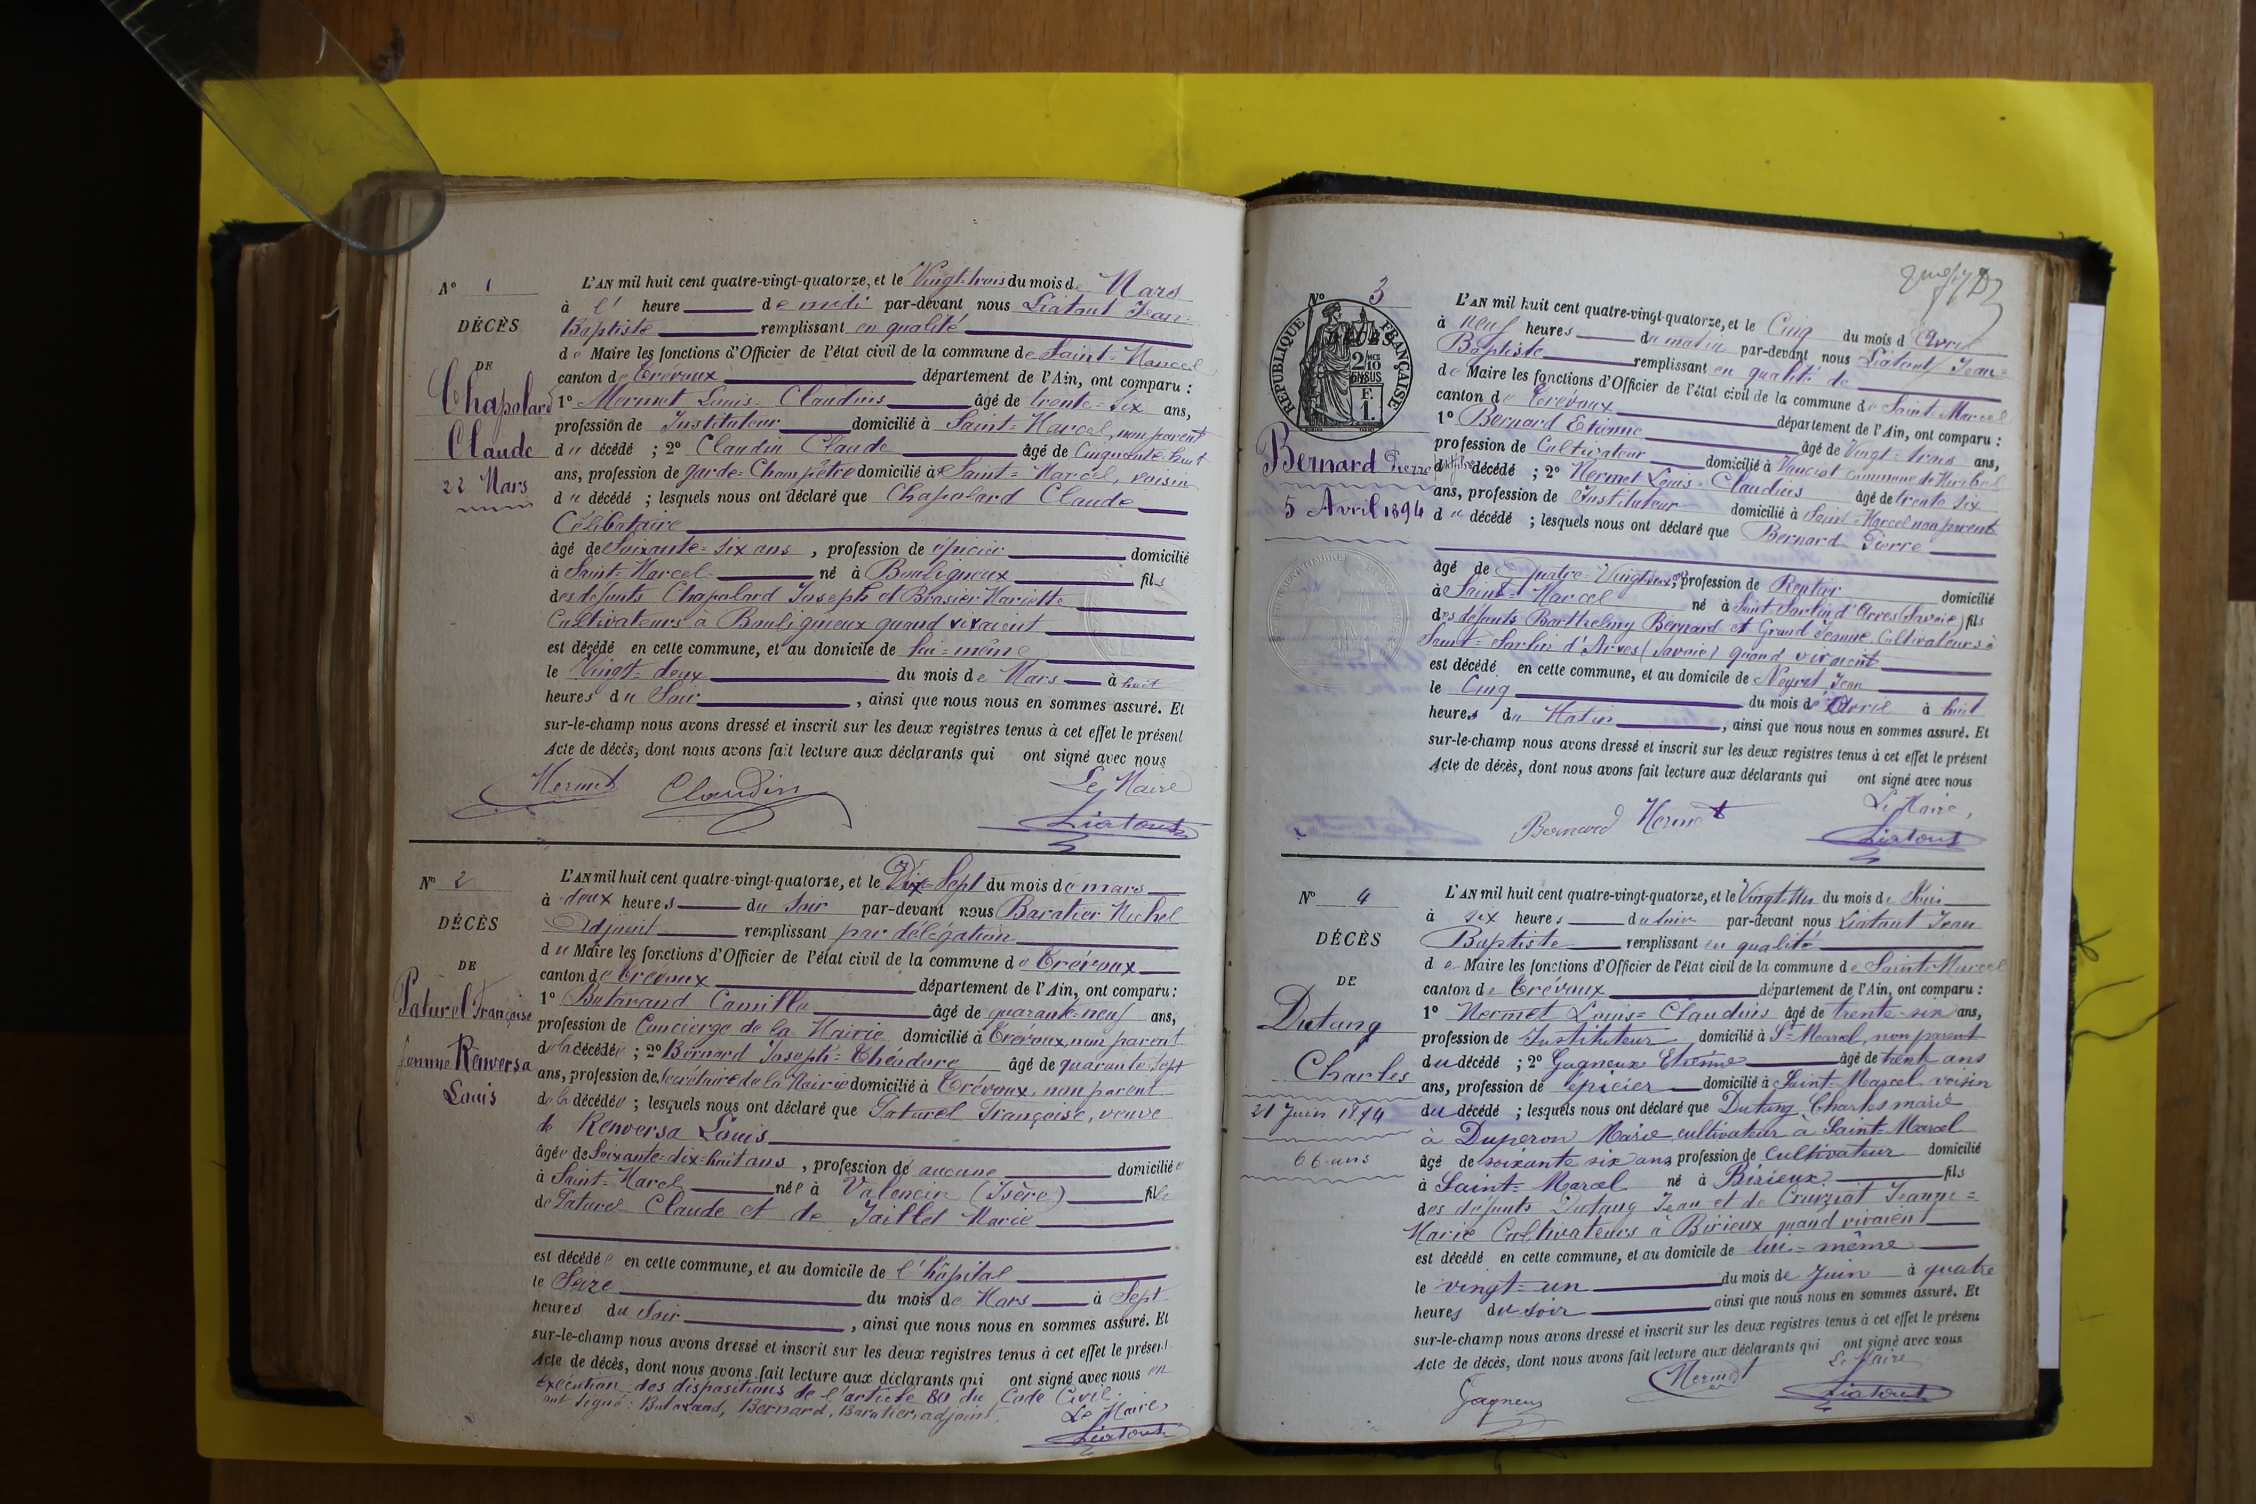 N° 1
DÉCÈS
DE
Chapolard
Claude
22 Mars
L'AN mil huit cent quatre-vingt-quatorze, et le Vingt-trois du mois de Mars
à l' heure de midi par-devant nous Liatout Jean-
Baptiste remplissant en qualité
de Maire les fonctions d'Officier de l'état civil de la commune de Saint-Marcel
canton de Trévoux département de l'Ain, ont comparu :
1° Mermet Louis-Claudius âgé de trente-six ans,
profession de Instituteur domicilié à Saint-Marcel, non parent
du décédé ; 2° Claudin Claude âgé de Cinquante-huit
ans, profession de garde-Champêtre domicilié à Saint-Marcel, voisin
du décédé ; lesquels nous ont déclaré que Chapolard Claude
Célibataire
âgé de Soixante-six ans, profession de épicier domicilié
à Saint-Marcel né à Bouligneux fils
des défunts Chapolard Joseph et Brasier Mariette
Cultivateurs à Bouligneux quand vivaient
est décédé en cette commune, et au domicile de lui-même
le Vingt-deux du mois de Mars à huit
heures du Soir, ainsi que nous nous en sommes assuré. Et
sur-le-champ nous avons dressé et inscrit sur les deux registres tenus à cet effet le présent
Acte de décès, dont nous avons fait lecture aux déclarants qui ont signé avec nous
Mermet Claudin Le Maire
Liatout
N° 2
DÉCÈS
DE
Paturel Françoise
femme Renversa
Louis
L'AN mil huit cent quatre-vingt-quatorze, et le Dix-Sept du mois de mars
à deux heures du Soir par-devant nous Baratier Michel
Adjoint remplissant par délégation
du Maire les fonctions d'Officier de l'état civil de la commune de Trévoux
canton de Trévoux département de l'Ain, ont comparu :
1° Butavand Camille âgé de quarante-neuf ans,
profession de Concierge de la Mairie domicilié à Trévoux, non parent
de la décédée ; 2° Bernard Joseph-Théodore âgé de quarante-sept
ans, profession de Secrétaire de la Mairie domicilié à Trévoux, non parent
de la décédée ; lesquels nous ont déclaré que Paturel Françoise, veuve
de Renversa Louis
âgée de Soixante-dix-huit ans, profession de aucune domiciliée
à Saint-Marcel née à Valencin (Isère) fille
de Paturel Claude et de Jaillet Marie
est décédée en cette commune, et au domicile de l'hôpital
le Seize du mois de Mars à Sept
heures du Soir, ainsi que nous nous en sommes assuré. Et
sur-le-champ nous avons dressé et inscrit sur les deux registres tenus à cet effet le présent
Acte de décès, dont nous avons fait lecture aux déclarants qui ont signé avec nous en
exécution des dispositions de l'article 80 du Code Civil.
ont signé : Butavand, Bernard, Baratier, adjoint.
Le Maire,
Liatout
N° 3
RÉPUBLIQUE FRANÇAISE
2/10
EN SUS
F.
1.
Bernard Pierre
5 Avril 1894
L'AN mil huit cent quatre-vingt-quatorze, et le Cinq du mois d'Avril
à neuf heures du matin par-devant nous Liatout Jean-
Baptiste remplissant en qualité de
de Maire les fonctions d'Officier de l'état civil de la commune de Saint-Marcel
canton de Trévoux département de l'Ain, ont comparu :
1° Bernard Etienne âgé de Vingt-trois ans,
profession de Cultivateur domicilié à Vancia commune de Miribel
du décédé ; 2° Mermet Louis-Claudius âgé de trente six
ans, profession de Instituteur domicilié à Saint-Marcel non parent
du décédé ; lesquels nous ont déclaré que Bernard Pierre
âgé de quatre-Vingt-deux ans, profession de Rentier domicilié
à Saint-Marcel né à Saint Sorlin d'Arves (Savoie) fils
des défunts Barthelemy Bernard et Grand Jeanne Cultivateurs à
Saint-Sorlin d'Arves (Savoie) quand vivaient
est décédé en cette commune, et au domicile de Neyret Jean
le Cinq du mois d'Avril à huit
heures du Matin, ainsi que nous nous en sommes assuré. Et
sur-le-champ nous avons dressé et inscrit sur les deux registres tenus à cet effet le présent
Acte de décès, dont nous avons fait lecture aux déclarants qui ont signé avec nous
Bernard Mermet Le Maire,
Liatout
N° 4
DÉCÈS
DE
Dutang
Charles
21 Juin 1894
66 ans
L'AN mil huit cent quatre-vingt-quatorze, et le Vingt-un du mois de Juin
à six heures du soir par-devant nous Liatout Jean
Baptiste remplissant en qualité
de Maire les fonctions d'Officier de l'état civil de la commune de Saint-Marcel
canton de Trévoux département de l'Ain, ont comparu :
1° Mermet Louis-Claudius âgé de trente-six ans,
profession de Instituteur domicilié à St-Marcel, non parent
du décédé ; 2° Gagneux Etienne âgé de trente ans
ans, profession de épicier domicilié à Saint-Marcel voisin
du décédé ; lesquels nous ont déclaré que Dutang Charles marié
à Duperon Marie cultivateur à Saint-Marcel
âgé de soixante six ans profession de cultivateur domicilié
à Saint-Marcel né à Birieux fils
des défunts Dutang Jean et de Cruiziat Jeanne-
Marie Cultivateurs à Birieux quand vivaient
est décédé en cette commune, et au domicile de lui-même
le vingt-un du mois de Juin à quatre
heures du soir ainsi que nous nous en sommes assuré. Et
sur-le-champ nous avons dressé et inscrit sur les deux registres tenus à cet effet le présent
Acte de décès, dont nous avons fait lecture aux déclarants qui ont signé avec nous
Gagneux Mermet Le Maire
Liatout